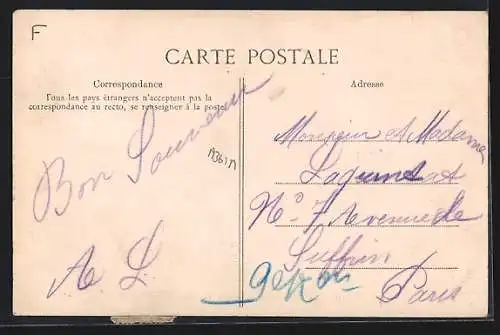 F
CARTE POSTALE
Correspondance
Tous les pays étrangers n'acceptent pas la
correspondance au recto, se renseigner à la poste
Bon Souvenir
A L
Adresse
Monsieur et Madame
No 7 Avenue de
Suffren
Paris